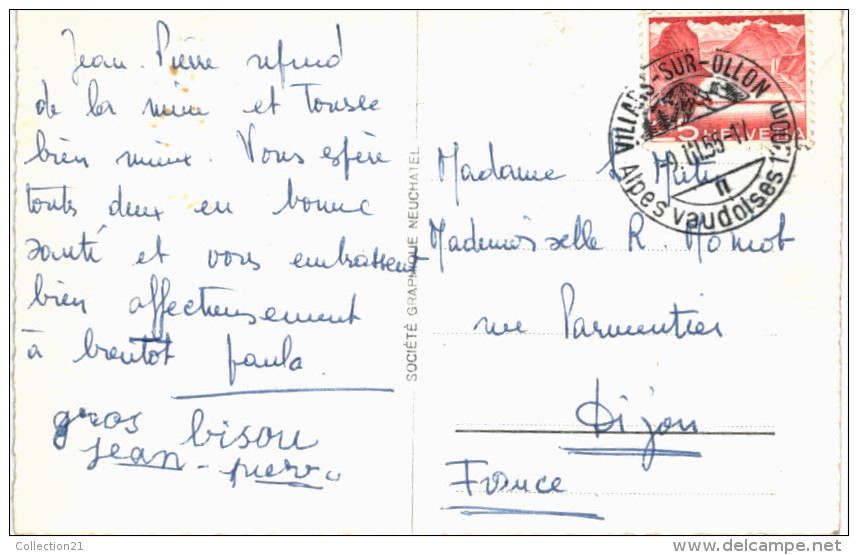 Jean-Pierre refend
de la mine et Tousse
bien mieux. Vous espère
touts deux en bonne
santé et vous embrassent
bien affectueusement
à bientôt paula.
gros bisou
jean-pierre
SOCIÉTÉ GRAPHIQUE NEUCHATEL
HELVETIA
VILLARS-SUR-OLLON
-9.III.55-17
Alpes vaudoises 1300m
Madame
Mademoiselle R. Momot
rue Parmentier
Dijon
France
Collection21
www.delcampe.net